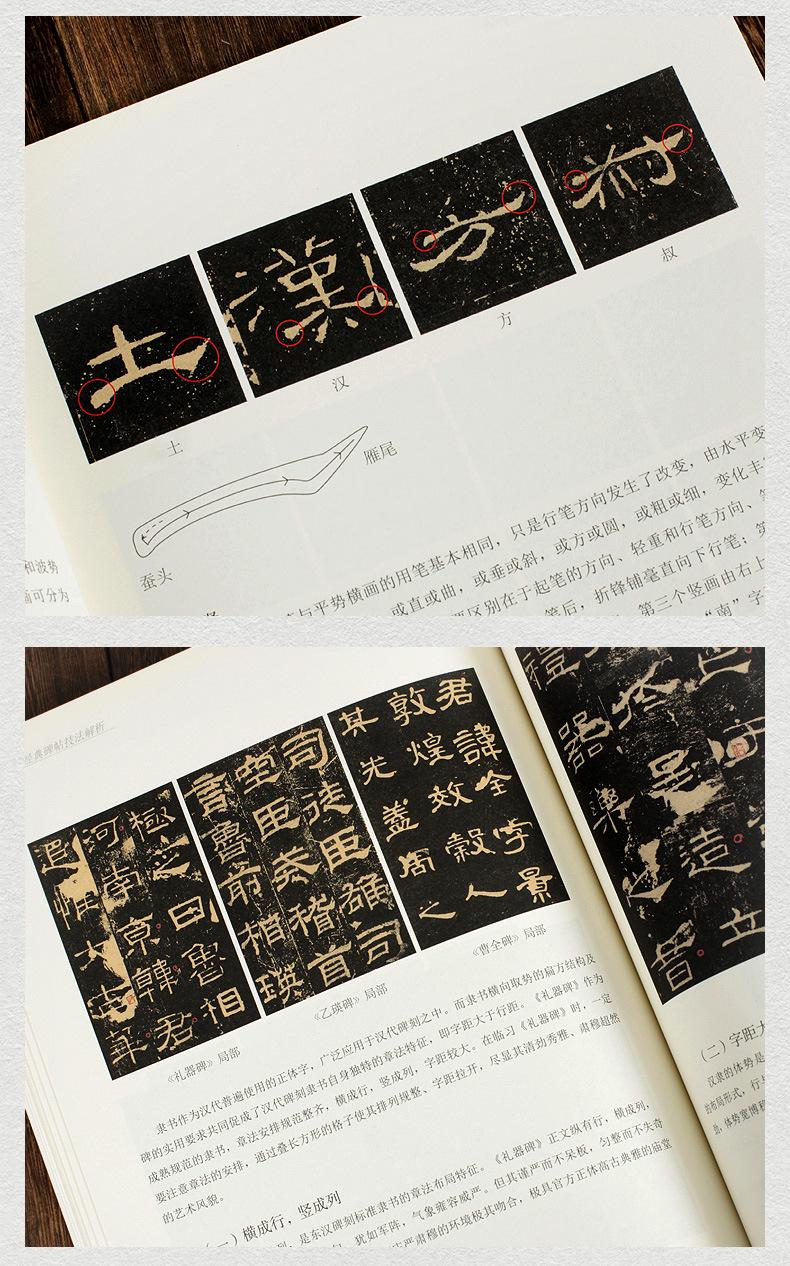 土
漢
方
叔
土
汉
方
叔
雁尾
蚕头
和波势
画可分为
与平势横画的用笔基本相同，只是行笔方向发生了改变，由水平变
或直或曲，或垂或斜，或方或圆，或粗或细，变化丰
区别在于起笔的方向、轻重和行笔方向、
笔后，折锋铺毫直向下行笔；第
第三个竖画由右上
“南”字
经典碑帖技法解析
追惟大古
河南京韩君
极之日鲁相
言鲁前相瑛
司空臣戒稽首
司徒臣雄司
君讳全字景
敦煌效穀人
其先盖周之
禮器樂
造立
《礼器碑》局部
《乙瑛碑》局部
《曹全碑》局部
隶书作为汉代普遍使用的正体字，广泛应用于汉代碑刻之中。而隶书横向取势的扁方结构及
碑的实用要求共同促成了汉代碑刻隶书自身独特的章法特征，即字距大于行距。《礼器碑》作为
成熟规范的隶书，章法安排规范整齐，横成行，竖成列，字距较大。在临习《礼器碑》时，一定
要注意章法的安排，通过叠长方形的格子使其排列规整、字距拉开，尽显其清劲秀雅、肃穆超然
的艺术风貌。
（一）横成行，竖成列
《礼器碑》正文纵有行，横成列，
列，是东汉碑刻标准隶书的章法布局特征。
犹如军阵，气象雍容威严。但其谨严而不呆板，匀整而不失奇
庄严肃穆的环境极其吻合，极具官方正体高古典雅的庙堂
（二）字距大
汉隶的体势是
的布局形式，行
势，体势宽博